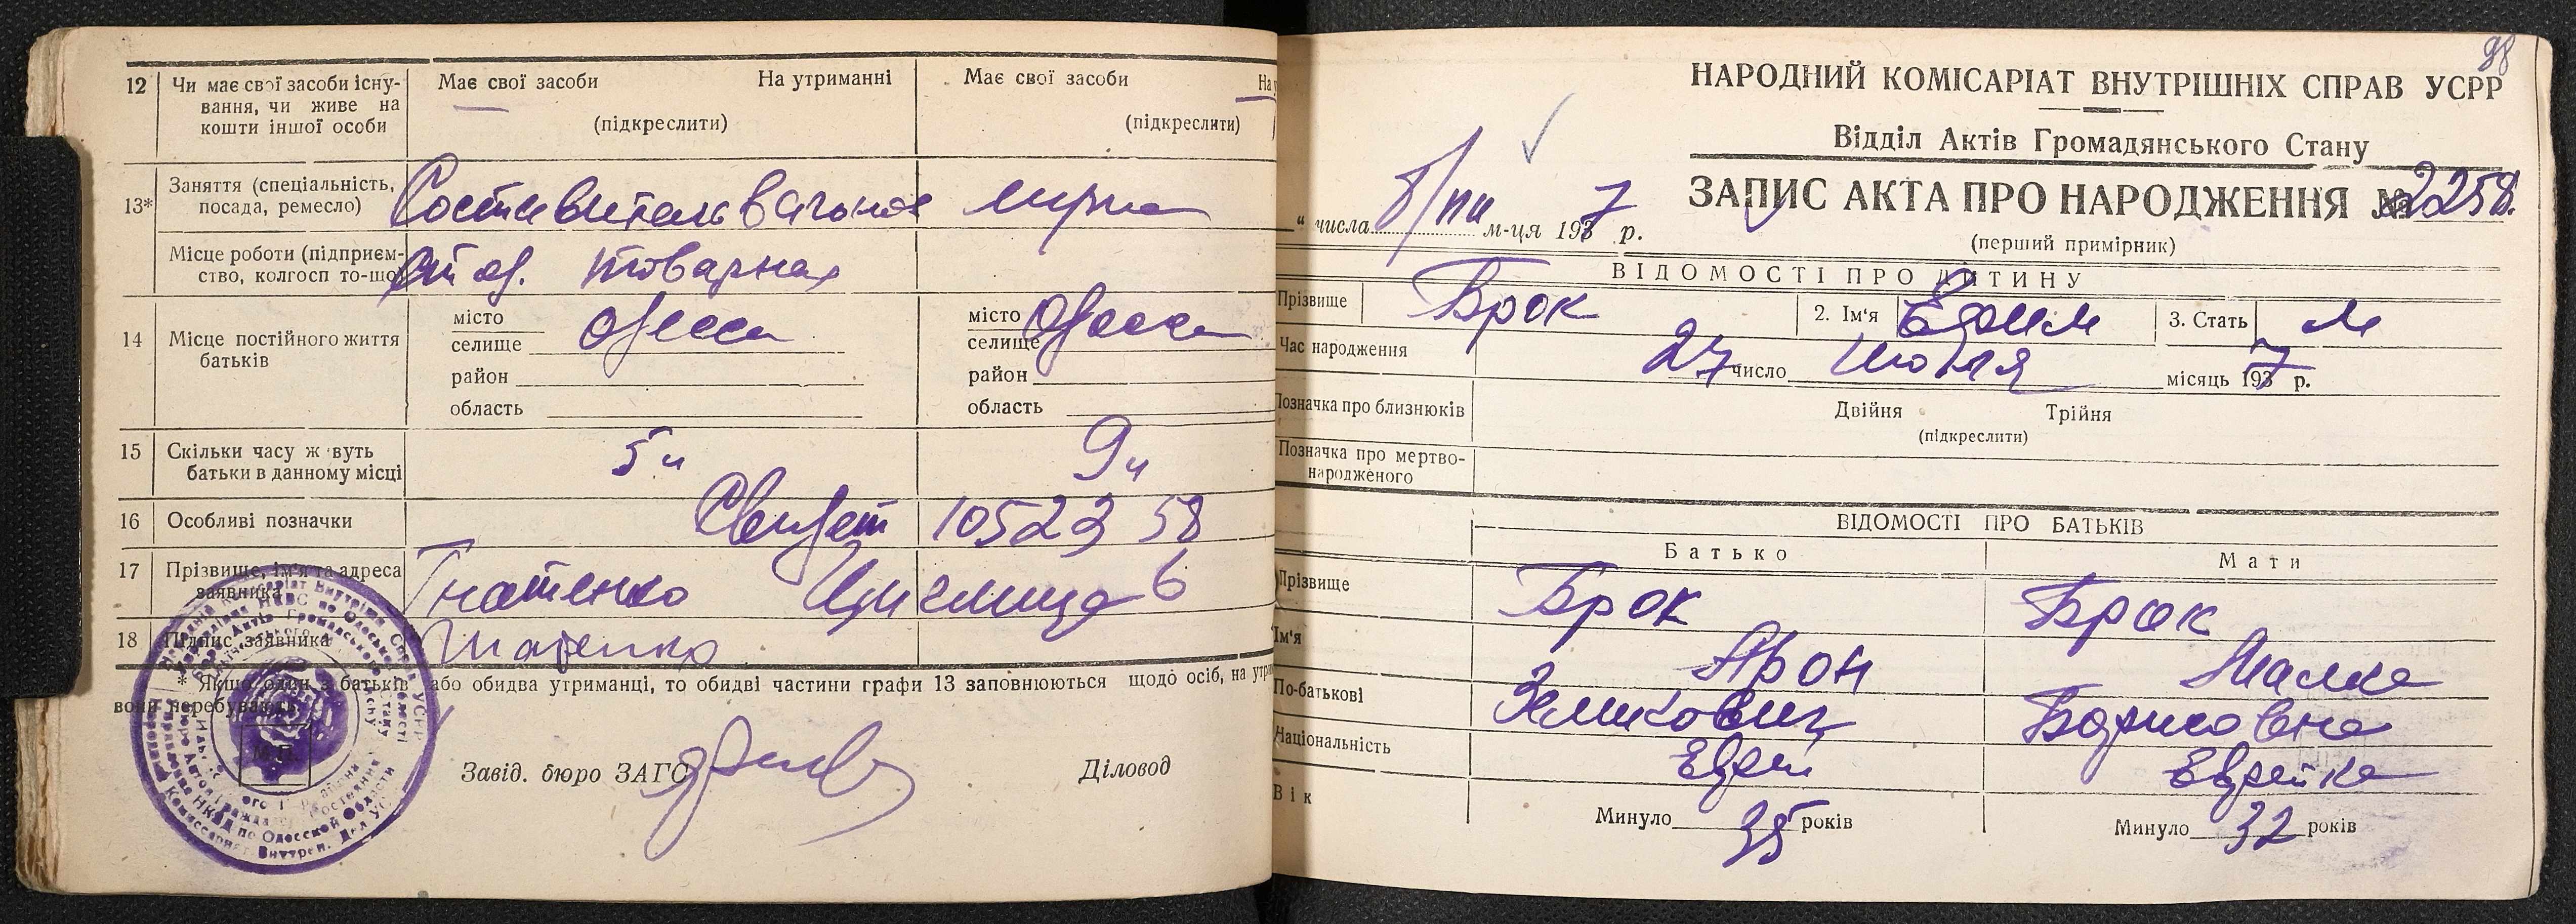 12 Чи має свої засоби існу-
вання, чи живе на
кошти іншої особи
Має свої засоби На утриманні
(підкреслити)
Має свої засоби На у
(підкреслити)
13* Заняття (спеціальність,
посада, ремесло)
Составитель вагонов
Місце роботи (підприєм-
ство, колгосп то-що)
ст од. товарная
14 Місце постійного життя
батьків
місто Одесса
селище
район
область
місто Одесса
селище
район
область
15 Скільки часу живуть
батьки в данному місці
5 л
9 л
16 Особливі позначки
105223 58
17 Прізвище, ім'я та адреса
заявника
Гнатенко
6
18 Підпис заявника
Гнатенко
* Якщо один з батьків або обидва утриманці, то обидві частини графи 13 заповнюються щодо осіб, на утри
вони перебувають.
М. П.
Завід. бюро ЗАГС
Діловод
98
НАРОДНИЙ КОМІСАРІАТ ВНУТРІШНІХ СПРАВ УСРР
Відділ Актів Громадянського Стану
ЗАПИС АКТА ПРО НАРОДЖЕННЯ № 2258
(перший примірник)
" числа м-ця 1937 р.
ВІДОМОСТІ ПРО ДИТИНУ
Прізвище Брок 2. Ім'я Ефим 3. Стать м
Час народження 27 число июля місяць 1937 р.
Позначка про близнюків Двійня Трійня
(підкреслити)
Позначка про мертво-
народженого
ВІДОМОСТІ ПРО БАТЬКІВ
Батько Мати
Прізвище Брок Брок
Ім'я Арон Малка
По-батькові Зеликович Борисовна
Національність Еврей Еврейка
Вік Минуло 35 років Минуло 32 років